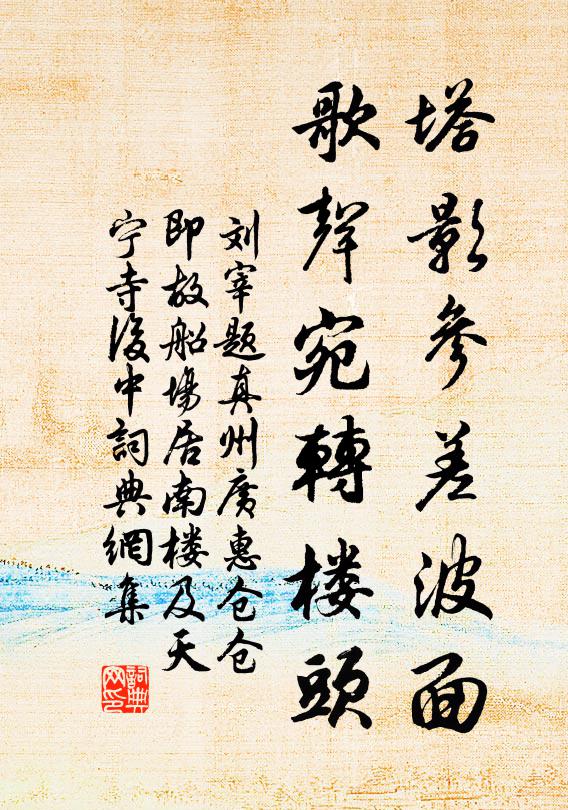 塔影參差波面
歌聲宛轉楼頭
刘宰题真州廣惠仓仓
即故船場居南楼及天
宁寺後中詞典網集
詞典
网印